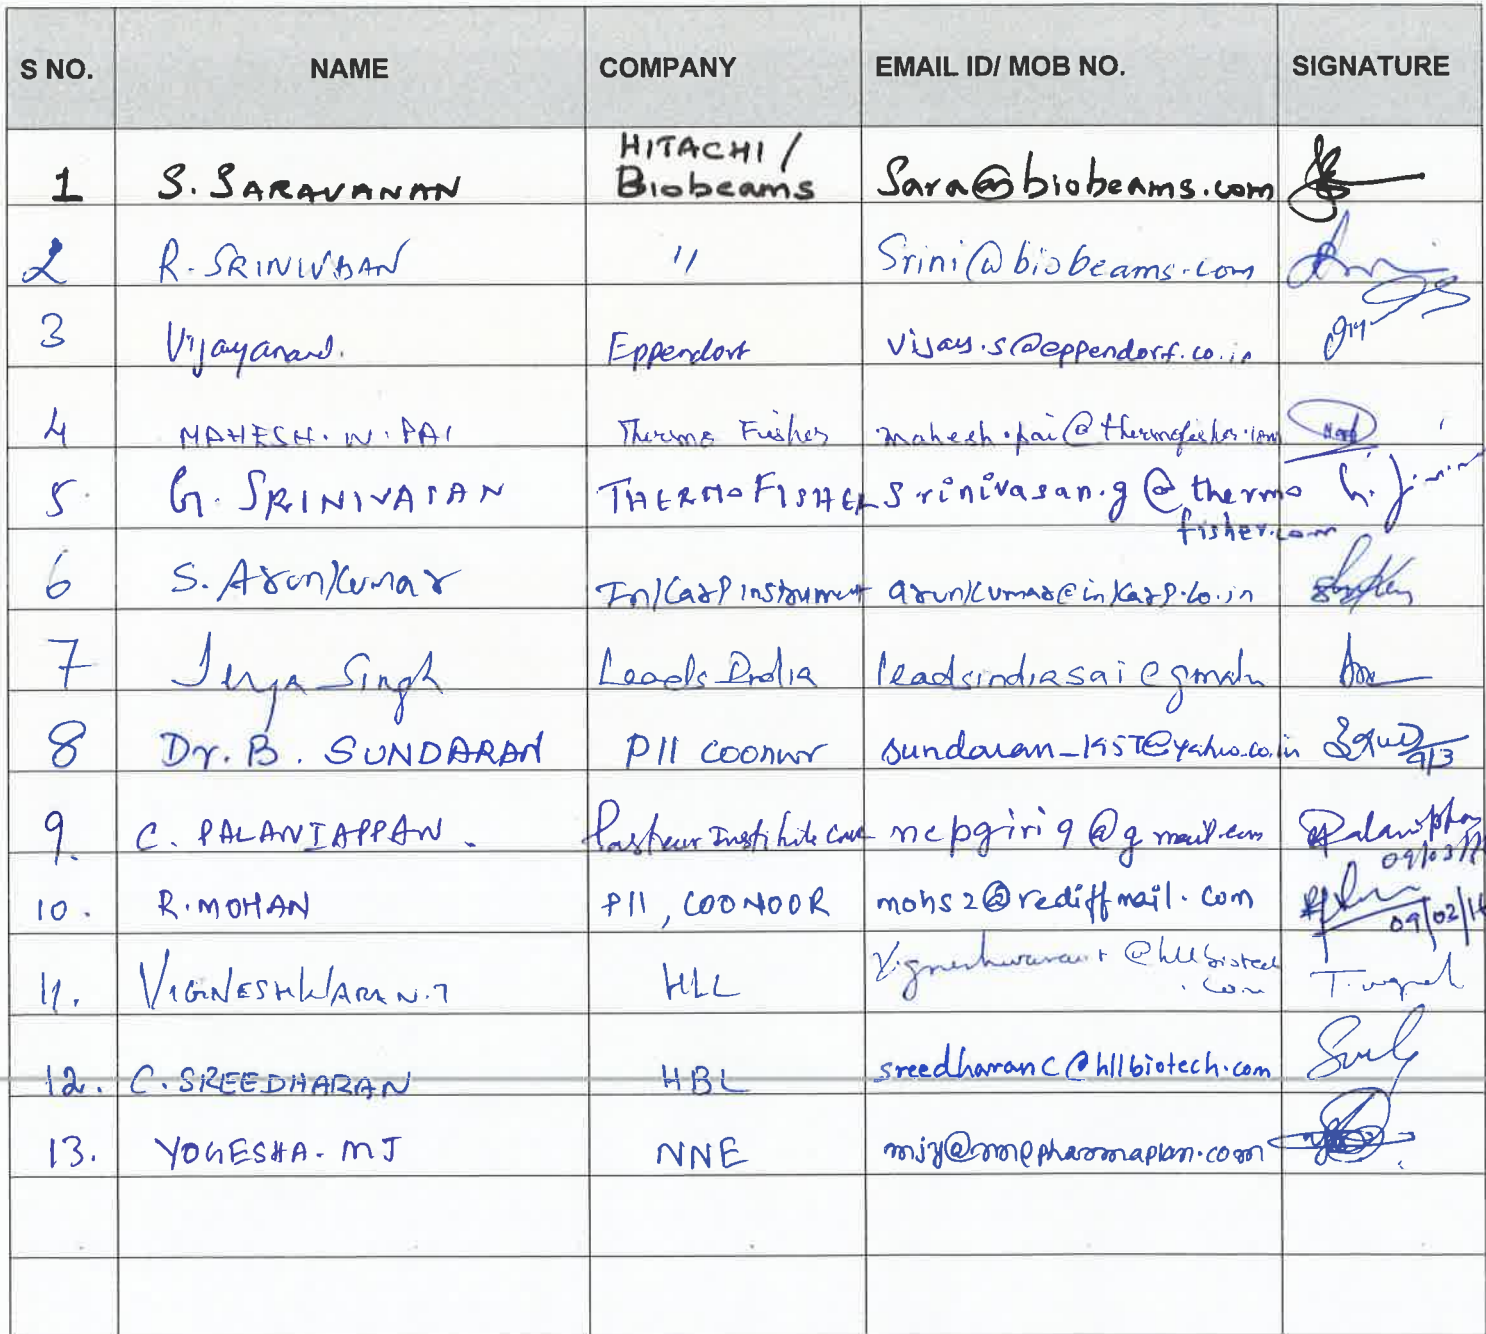 S NO. NAME COMPANY EMAIL ID/ MOB NO. SIGNATURE
1 S. SARAVANAN HITACHI / Biobeams Sara@biobeams.com
2 R. SRINIVASAN " Srini@biobeams.com
3 Vijayanand. Eppendorf vijay.s@eppendorf.co.in
4 MAHESH. N. PAI Thermo Fisher mahesh.pai@thermofisher.com
5. G. SRINIVASAN THERMOFISHER Srinivasan.g@thermo
fisher.com
6 S. Arunkumar Inkarp instrument arunkumar@inkarp.co.in
7 Singh Leads India leadsindiasai@gmail
8 Dr. B. SUNDARAN PII coonur sundaran_1957@yahoo.co.in 9/3
9. C. PALANIAPPAN. Pasteur Institute ncpgiri9@gmail.com
09/03/
10. R. MOHAN PII, COONOOR mohs2@rediffmail.com
09/02/16
11. VIGNESHWARAN.T HLL Vigneshwaran.t@hllbiotech
.com
12. C. SREEDHARAN HBL sreedharanc@hllbiotech.com
13. YOGESHA. MJ NNE mjy@nnepharmaplan.com